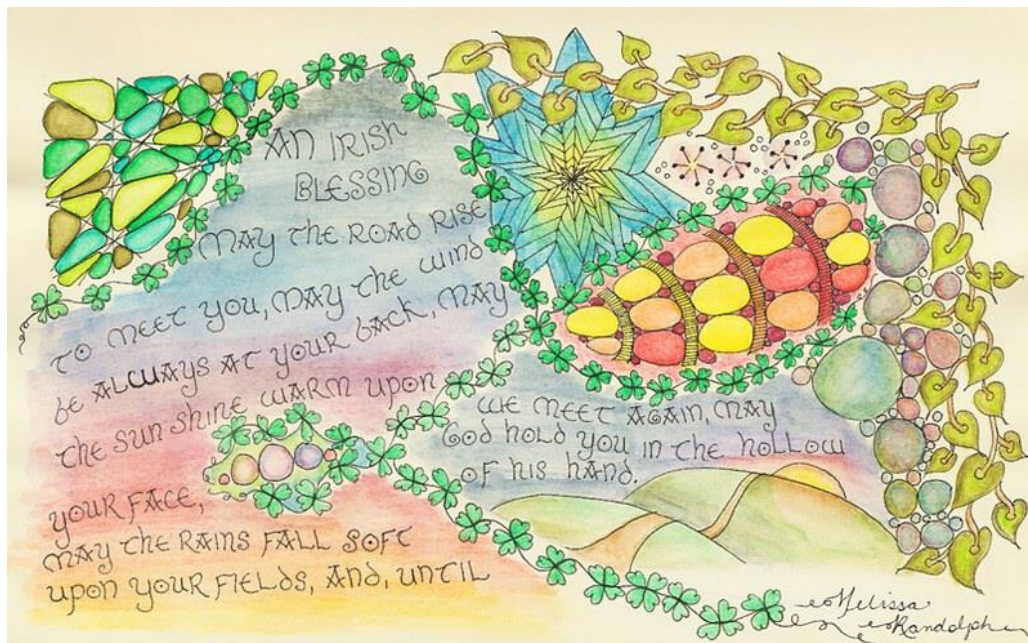 AN IRISH
BLESSING
MAY THE ROAD RISE
TO MEET YOU, MAY THE WIND
BE ALWAYS AT YOUR BACK, MAY
THE SUN SHINE WARM UPON
YOUR FACE,
MAY THE RAINS FALL SOFT
UPON YOUR FIELDS, AND, UNTIL
WE MEET AGAIN, MAY
GOD HOLD YOU IN THE HOLLOW
OF HIS HAND.
Melissa
Randolph